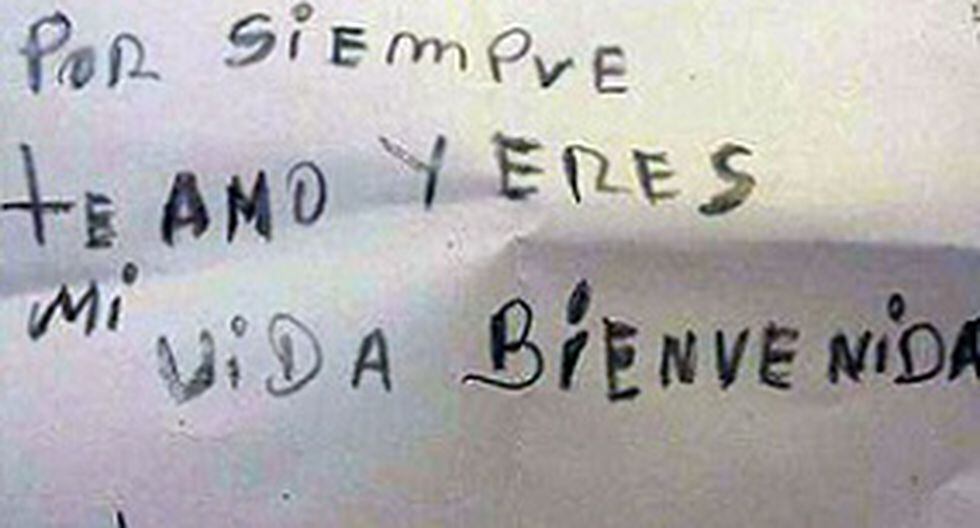 POR SiEmPrE
tE AMO Y ERES
Mi
ViDA BiENVENiDA